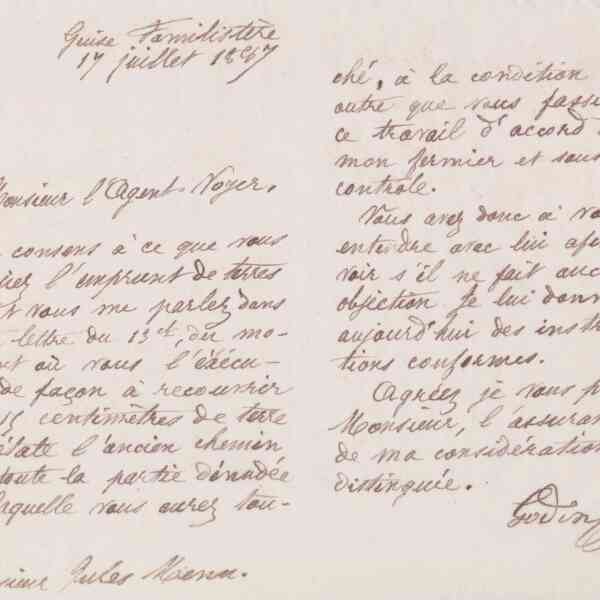 Guise Familistère
17 juillet 1887
Monsieur l'Agent-Voyer,
consens à ce que vous
l'emprunt de terres
vous me parlez dans
lettre du 13 ct, du mo-
où vous l'exécu-
de façon à recouvrir
15 centimètres de terre
l'ancien chemin
toute la partie dénudée
laquelle vous aurez tou-
Jules
ché, à la condition
outre que vous fassi
ce travail d'accord
mon fermier et sous
contrôle.
Vous avez donc à vo
entendre avec lui afi
voir s'il ne fait auc
objection. Je lui donn
aujourd'hui des instr
tions conformes.
Agréez je vous p
Monsieur, l'assuran
de ma considération
distinguée.
Godin